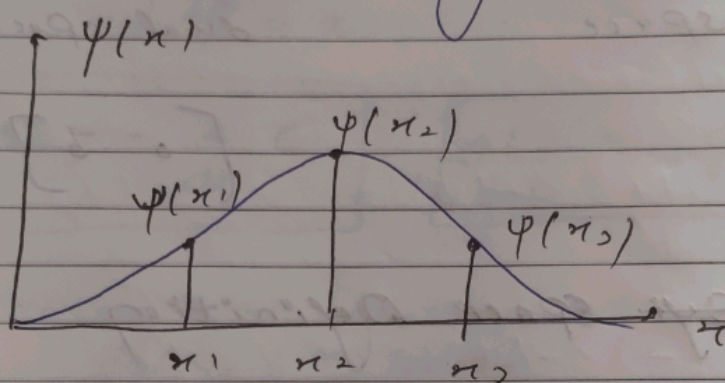 ψ(x)
ψ(x2)
ψ(x1)
ψ(x3)
x1 x2 x3
x